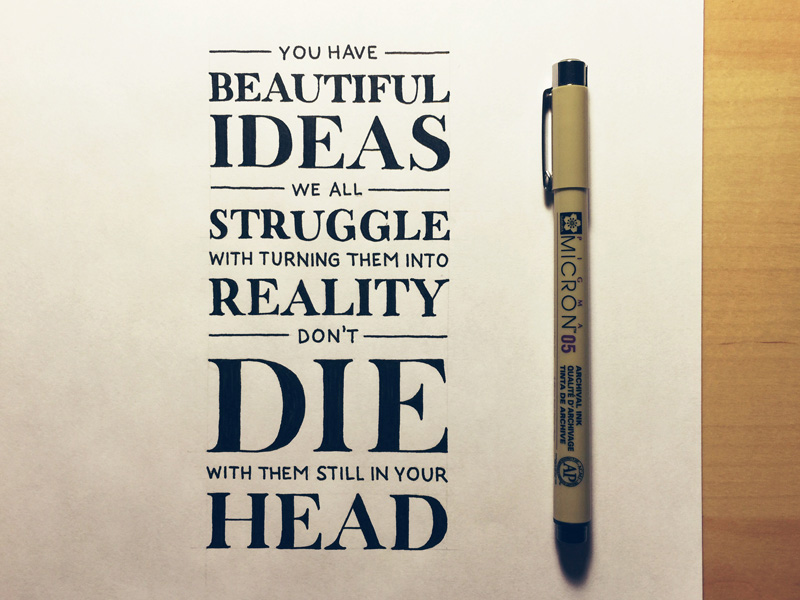 YOU HAVE
BEAUTIFUL
IDEAS
WE ALL
STRUGGLE
WITH TURNING THEM INTO
REALITY
DON'T
DIE
WITH THEM STILL IN YOUR
HEAD
PIGMA
MICRON™ 05
ARCHIVAL INK
QUALITÉ D'ARCHIVAGE
TINTA DE ARCHIVE
AP